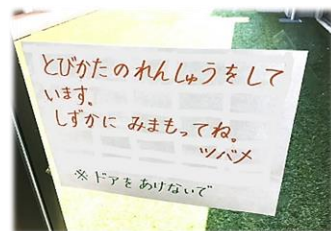 とびかたのれんしゅうをして
います。
しずかに みまもってね。
ツバメ
※ドアをあけないで